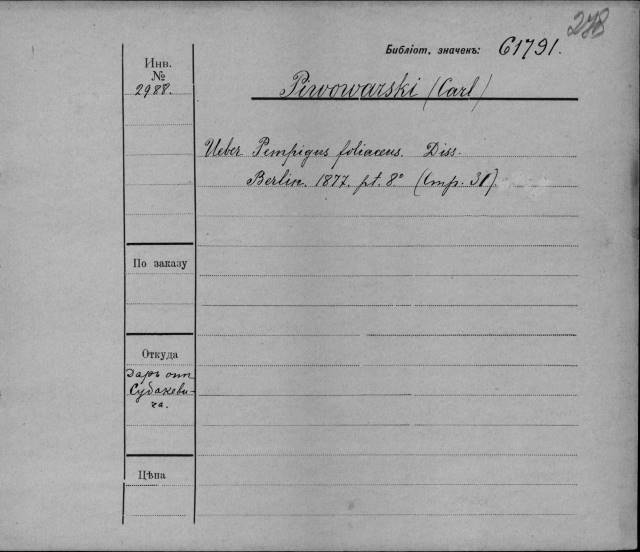 278
Библіот. значекъ: 61791.
Инв.
№
2988.
Piwowarski (Carl)
Ueber Pempigus foliaceus. Diss.
Berlin. 1877. pt. 8° (стр. 31)
По заказу
Откуда
Даръ отъ
Судакеви-
ча.
Цѣна